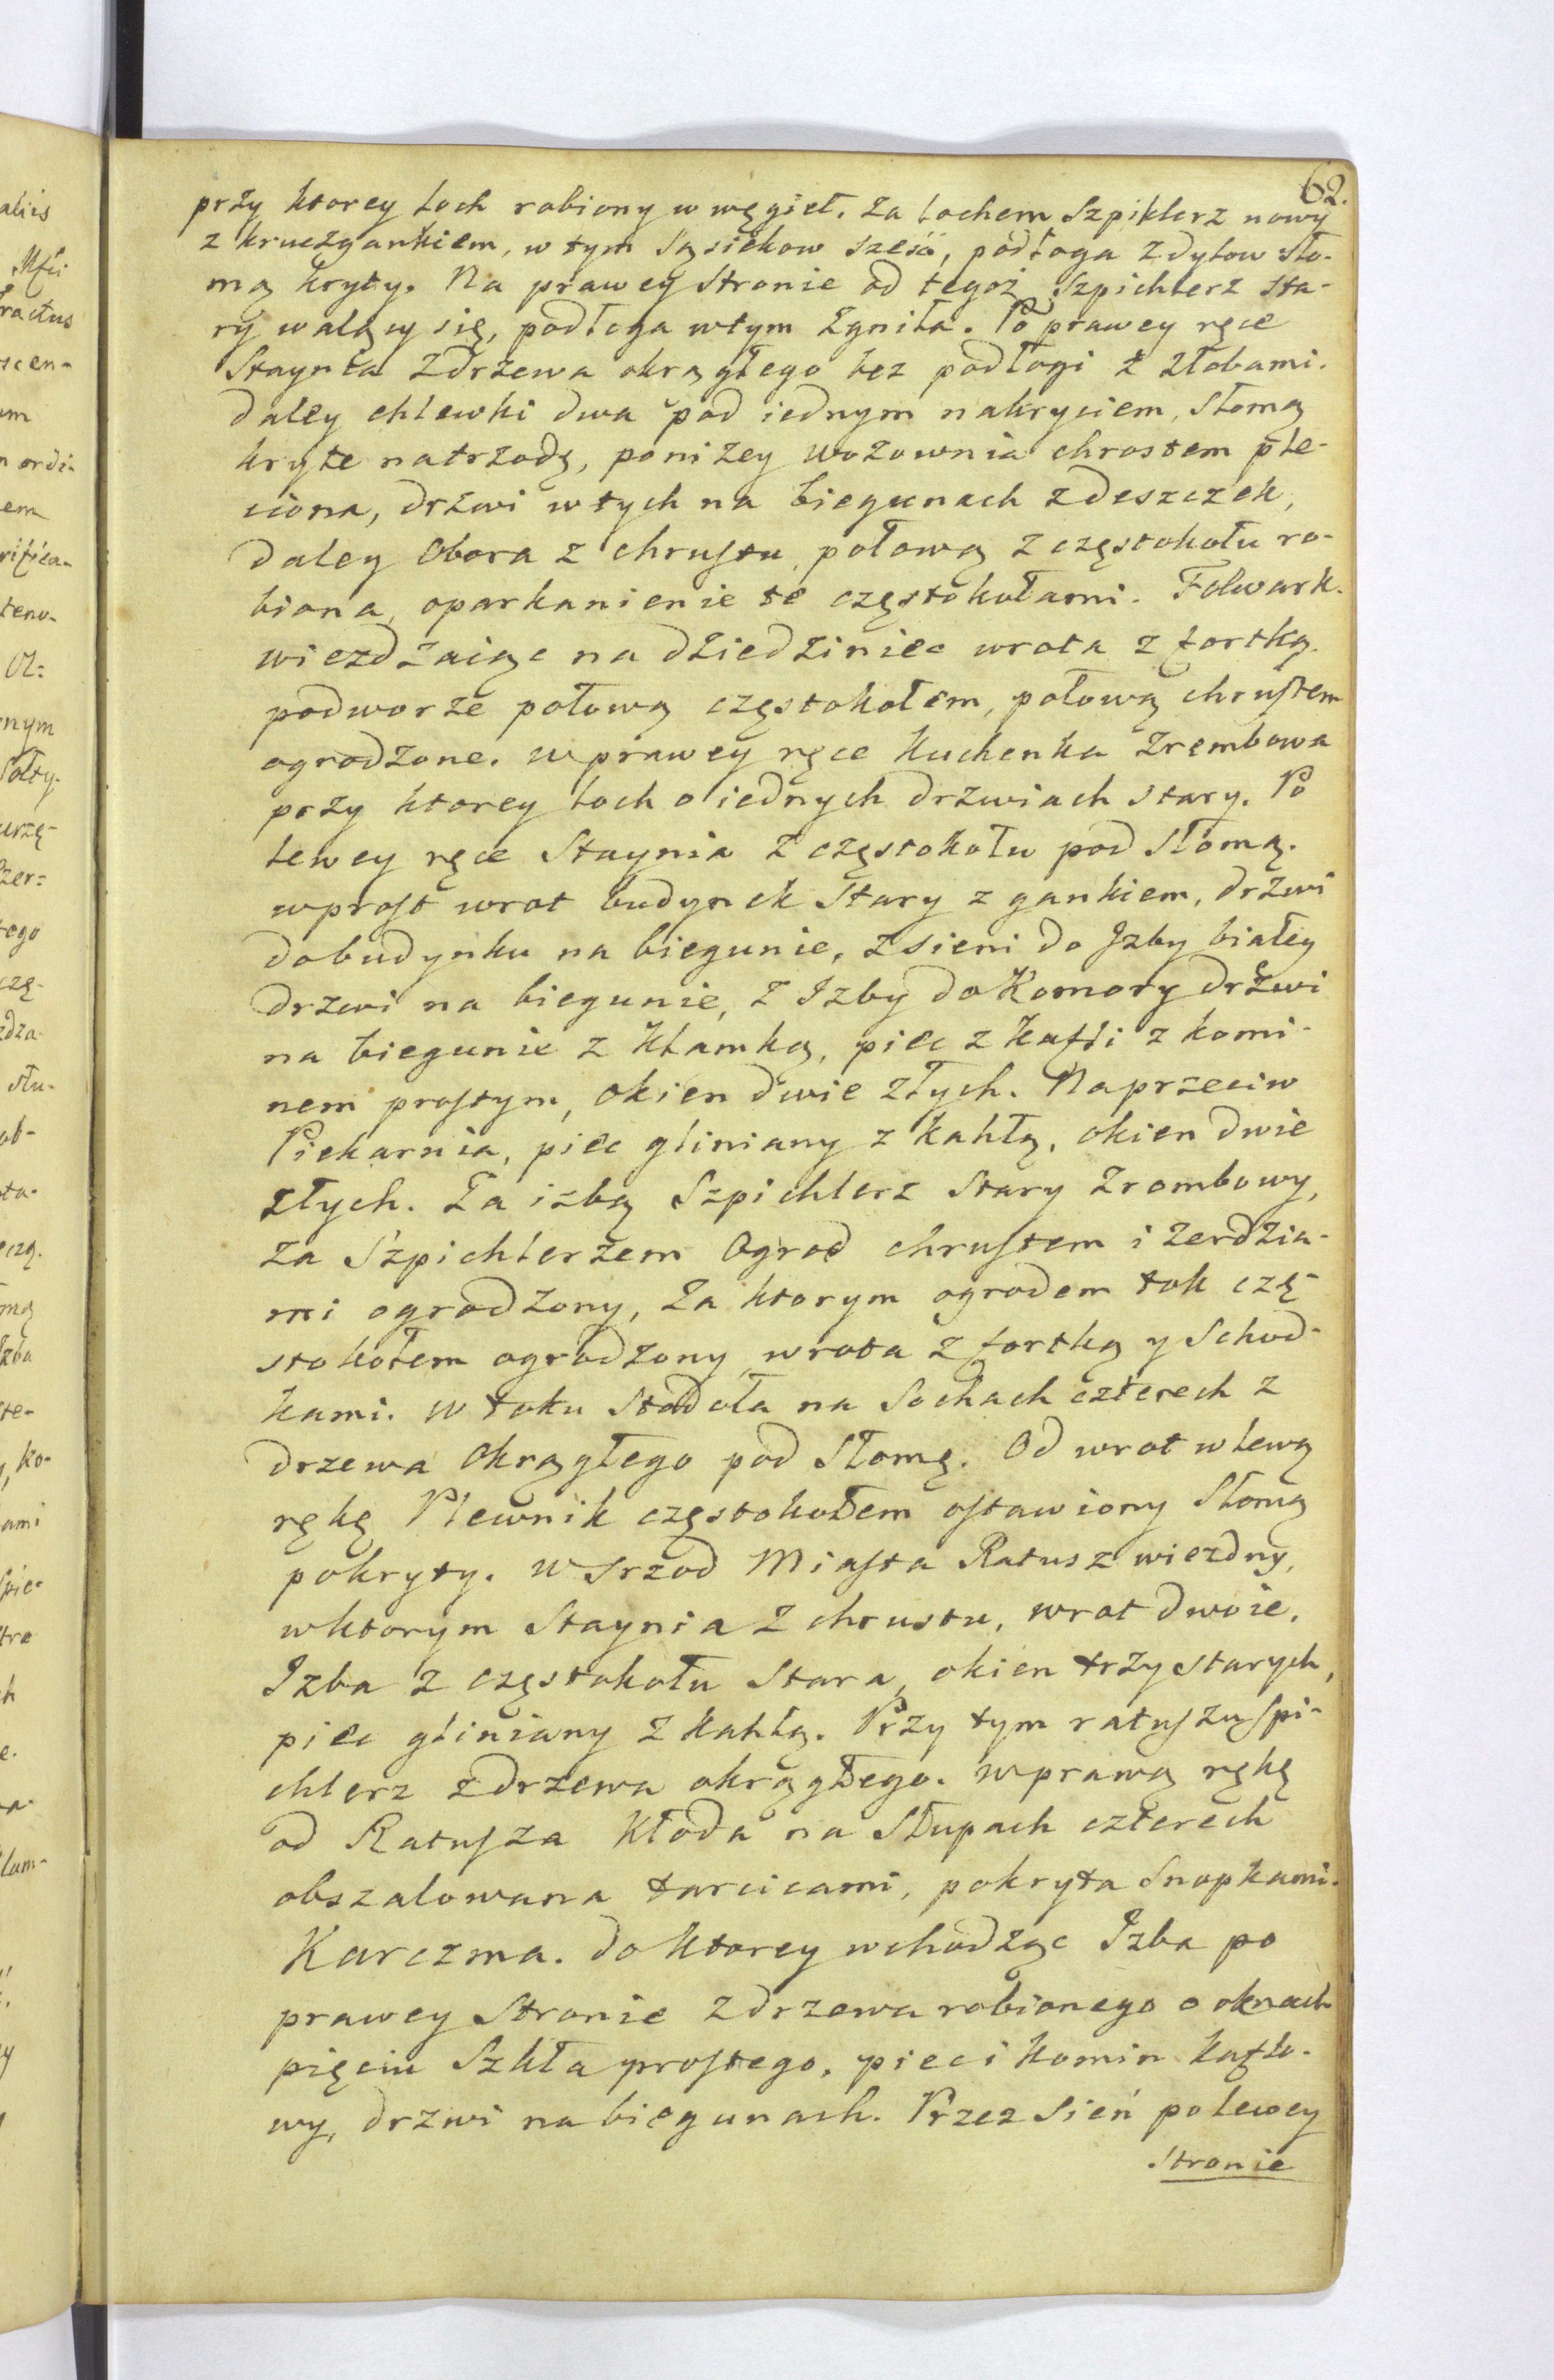 62.
przy ktorey loch robiony w węgieł. Za lochem Szpiklerz nowy
z kruczgankiem, w tym Sąsiekow sześć, podłoga z dylow sło-
mą kryty. Na prawey stronie od tegoż Szpichlerz sta-
ry walący się, podłoga w tym zgniła. Po prawey ręce
Staynia z drzewa okrągłego bez podłogi z złobami.
daley chlewki dwa pod iednym nakryciem, słomą
kryte na trzodę, poniżey wozownia chrostem ple-
ciona, drzwi w tych na biegunach z deszczek,
daley Obora z chrustu, połową z częstokołu ro-
biona, oparkanienie te częstokołami. Folwark.
wiezdzaiąc na dziedziniec wrota z fortką.
podworze połową częstokołem, połową chrustem
ogrodzone. w prawey ręce Kuchenka zrembowa
przy ktorey loch o iednych drzwiach stary. Po
lewey ręce Staynia z częstokołu pod słomą.
wprost wrot budynek Stary z gankiem, drzwi
do budynku na biegunie, z sieni do Izby białey
drzwi na biegunie, z Izby do Komory drzwi
na biegunie z klamką, piec z kafli z komi-
nem prostym, okien dwie złych. Naprzeciw
Piekarnia, piec gliniany z kahlą, okien dwie
złych. Za izbą Szpichlerz Stary zrombowy,
za Szpichlerzem Ogrod chrustem i zerdzia-
mi ogrodzony, za ktorym ogrodem tok czę-
stokołem ogrodzony, wrota z fortką y Schod-
kami. w toku Stodoła na Sochach czterech z
drzewa okrągłego pod Słomą. Od wrot w lewą
rękę Plewnik częstokołem ostawiony Słomą
pokryty. w Srzod Miasta Ratusz wiezdny,
w ktorym Staynia z chrustu, wrot dwoie,
Izba z częstokołu Stara, okien trzy starych,
piec gliniany z kahlą. Przy tym ratuszu Spi-
chlerz z drzewa okrągłego. w prawą rękę
od Ratusza Kłoda na Słupach czterech
obszalowana tarcicami, pokryta Snopkami.
Karczma. do ktorey wchodząc Izba po
prawey Stronie z drzewa robionego o oknach
pięciu Szkła prostego, piec i komin kaflo-
wy, drzwi na biegunach. Przez Sień po lewey
Stronie